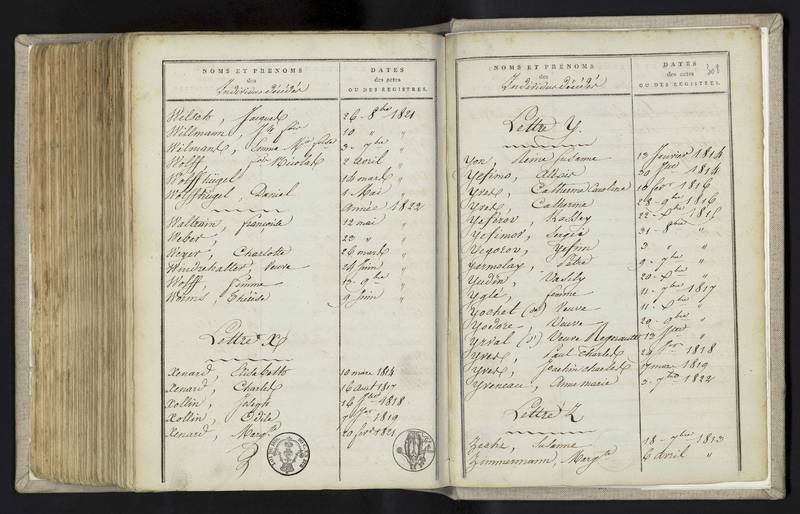 NOMS ET PRÉNOMS
des
Individus décédés
DATES
des actes
OU DES REGISTRES.
Welsch, Jacques 26 - 8bre 1821
Willmann, 10 " "
Wilmant, Emma 3 - 7bre "
Wolff, Nicolas 2 avril "
Wolffhugel 14 mars "
Wolffhugel, Daniel 1 Mai "
Année 1822
Waltrain, françoise 12 mai "
Weber, 23 " "
Weyer, Charlotte 26 mars "
Windrehalter, Veuve 24 Juin "
Wolff, femme 9bre "
Worms, Thérèse 9 Juin "
Lettre X
Xenard, Elisabeth 10 mars 1814
Xenard, Charles 16 aout 1817
Xollin, Joseph 16 1818
Xollin, Odile 7 1819
Xenard, Margte 20 fevr 1821
NOMS ET PRÉNOMS
des
Individus décédés
DATES
des actes
OU DES REGISTRES.
308
Lettre Y.
Yon, Reine Susanne 13 fevrier 1814
Yefimo, Alexis 20 1814
Yves, Catherine Caroline 16 fevr 1816
Yves, Catherine 28 - 9bre 1816
Yefferov, 22 - Xbre 1815
Yefimor, Sergée 31 - 8bre "
Yegorov, Yefim 3 " "
Yermolay, 9 - 7bre "
Yudin, Vasily 20 - Xbre "
Yglé, femme 11 - 7bre 1817
Yochel (de) Veuve 11 - Xbre "
Yodore, Veuve 20 - 9bre "
Yrval (d') Veuve 13 "
Yves, Paul charles 29 1818
Yves, Joachin charles 7 mars 1819
Yvoneau, Anne marie 3 - 7bre 1822
Lettre Z
Zeche, Susanne 18 - 7bre 1813
Zimmermann, Margte 6 Avril "